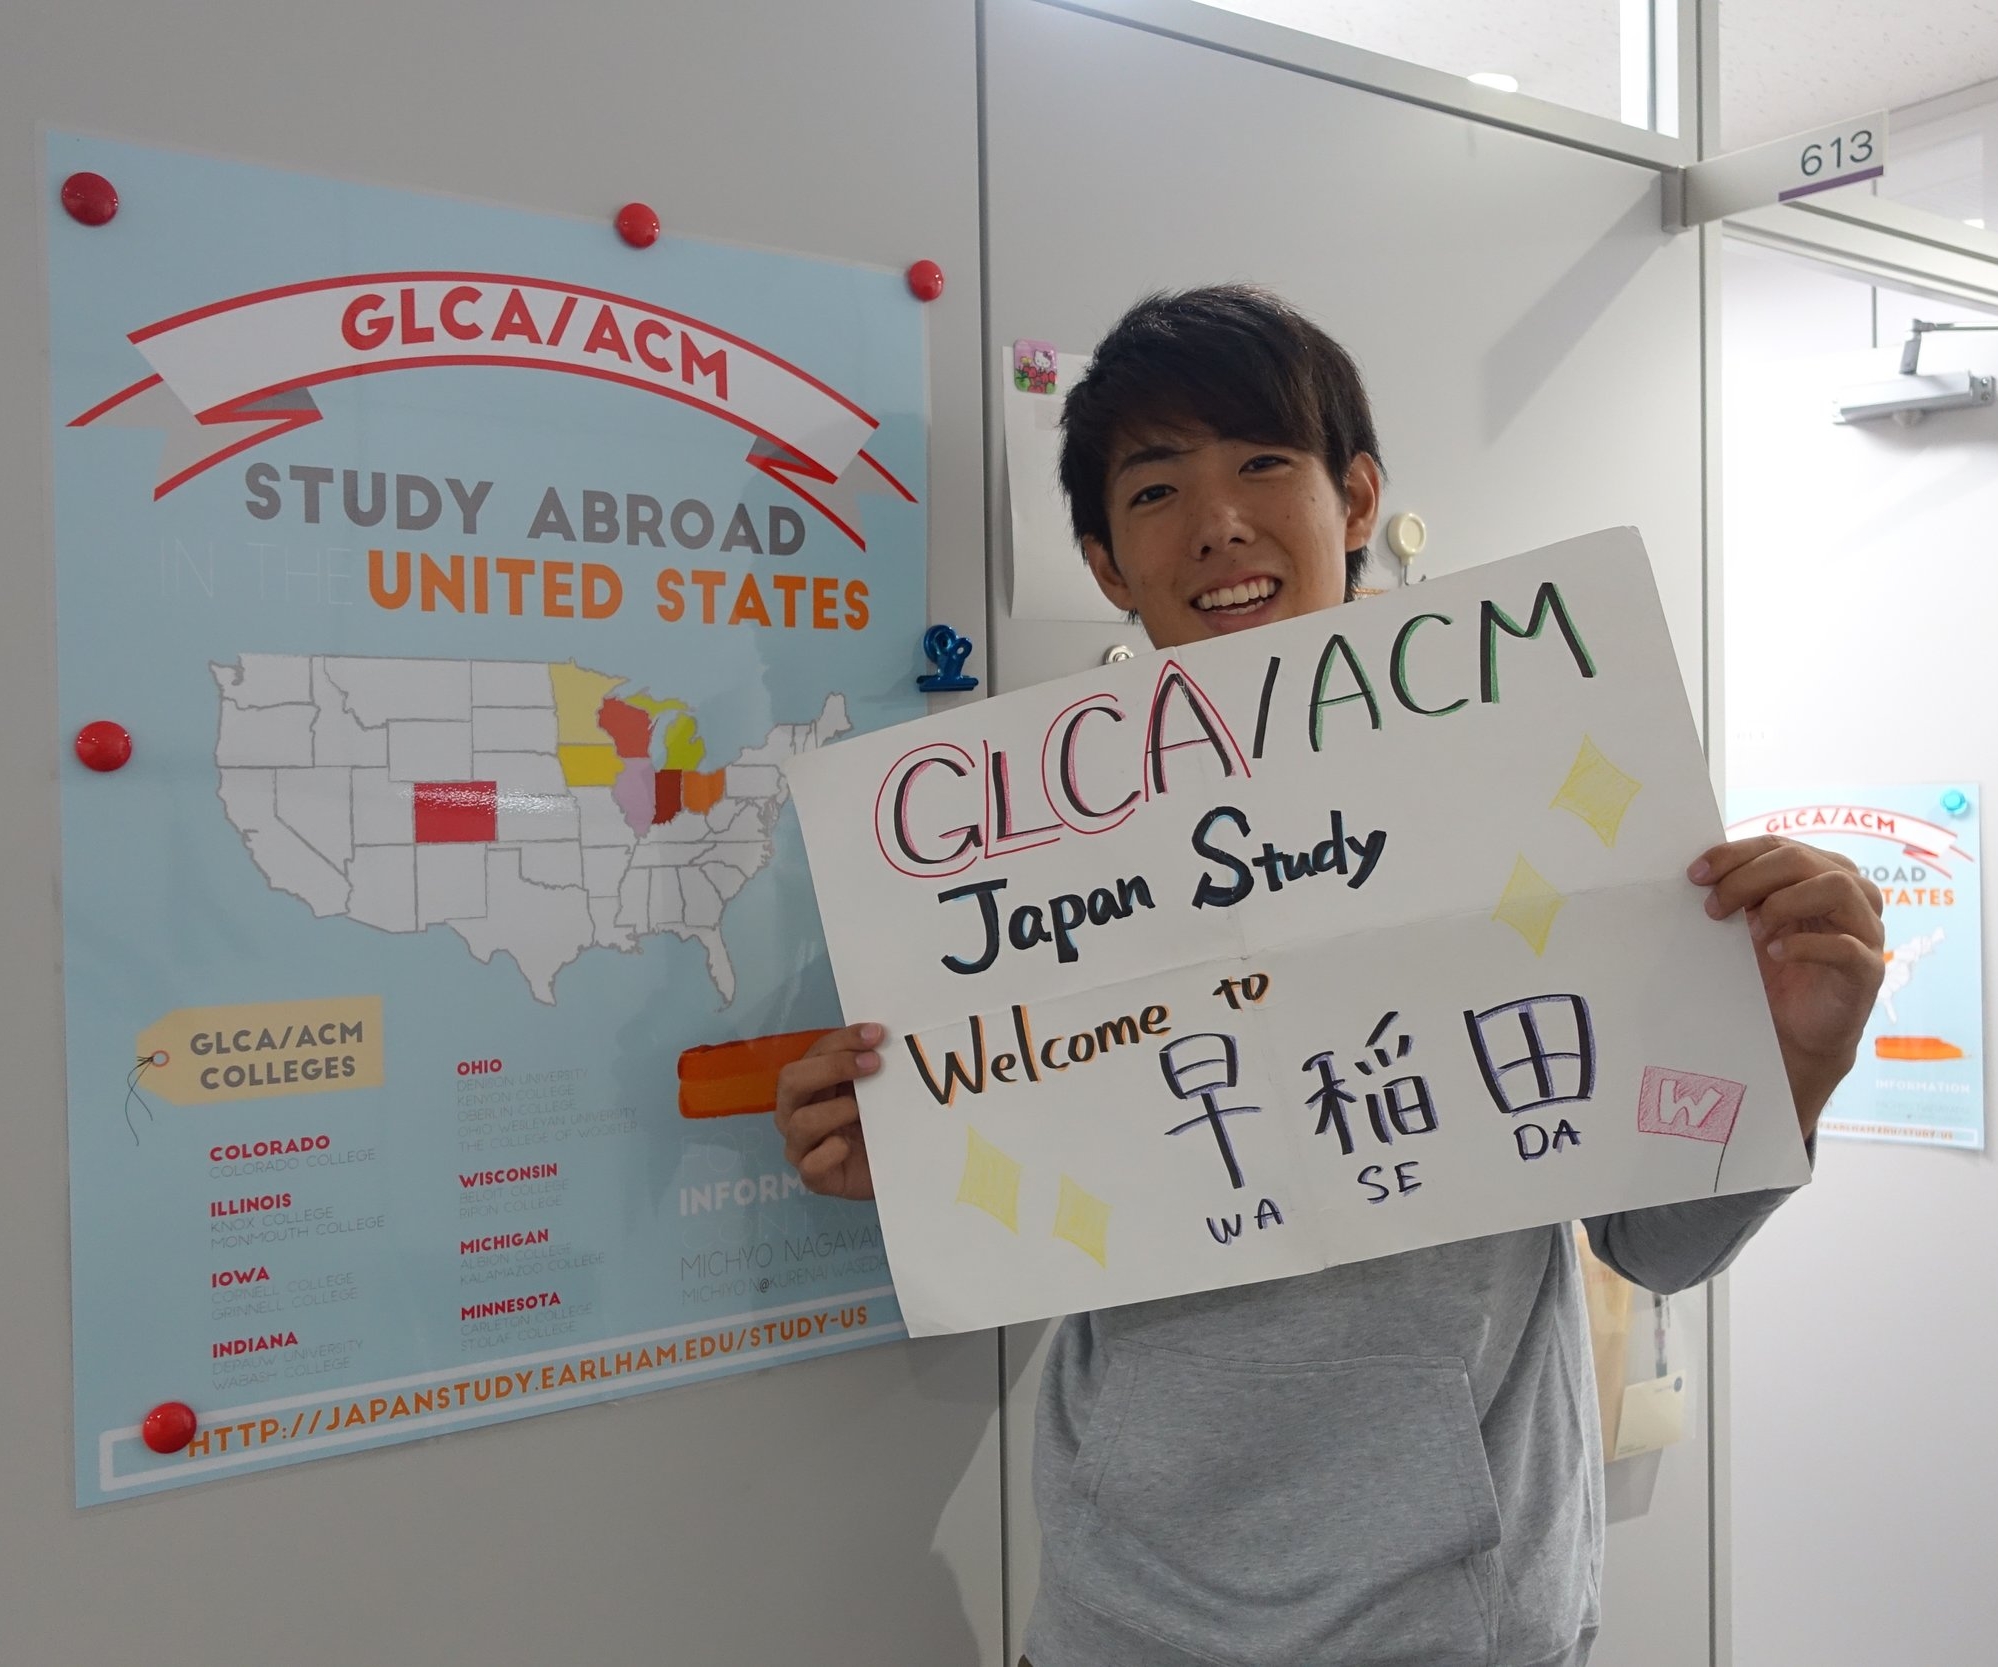 GLCA/ACM
STUDY ABROAD
IN THE UNITED STATES
GLCA/ACM
COLLEGES
COLORADO
COLORADO COLLEGE
ILLINOIS
KNOX COLLEGE
MONMOUTH COLLEGE
IOWA
CORNELL COLLEGE
GRINNELL COLLEGE
INDIANA
DEPAUW UNIVERSITY
WABASH COLLEGE
OHIO
DENISON UNIVERSITY
KENYON COLLEGE
OBERLIN COLLEGE
OHIO WESLEYAN UNIVERSITY
THE COLLEGE OF WOOSTER
WISCONSIN
BELOIT COLLEGE
RIPON COLLEGE
MICHIGAN
ALBION COLLEGE
KALAMAZOO COLLEGE
MINNESOTA
CARLETON COLLEGE
ST.OLAF COLLEGE
MICHIYO
HTTP://JAPANSTUDY.EARLHAM.EDU/STUDY-US
GLCA/ACM
Japan Study
Welcome to
早稲田
WA SE DA
W
613
GLCA/ACM
INFORMATION